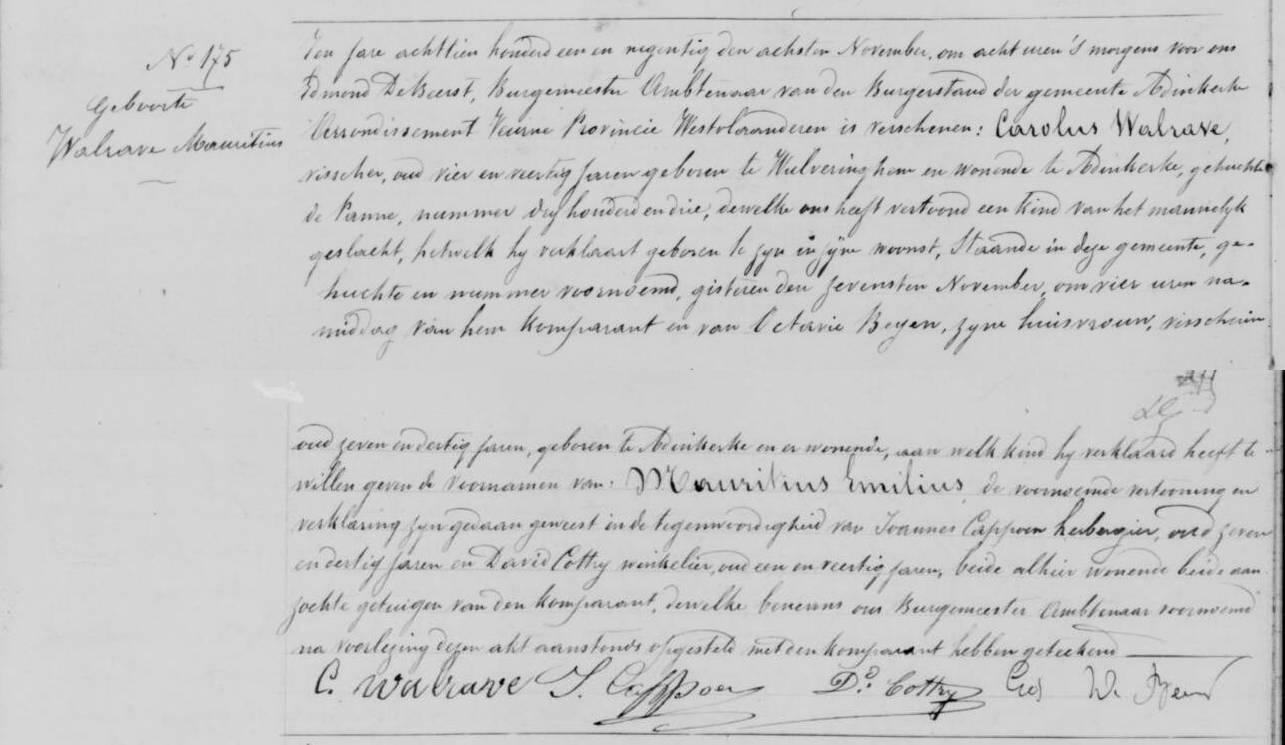 N° 175
Geboorte
Walrave Mauritius
Ten jare achttien honderd een en negentig den achsten November, om acht uren 's morgens voor ons
Edmond DeBeerst, Burgemeester Ambtenaar van den Burgerstand der gemeente Adinkerke
Arrondissement Veurne Provincie Westvlaanderen is verschenen: Carolus Walrave,
visscher, oud vier en veertig jaren geboren te Wulveringhem en wonende te Adinkerke, gehuchte
de Panne, nummer dry honderd en drie, dewelke ons heeft vertoond een kind van het mannelyk
geslacht, hetwelk hy verklaart geboren te zyn in zyne woonst, staande in deze gemeente, ge-
huchte en nummer voornoemd, gisteren den zevensten November, om vier uren na-
middag van hem komparant en van Octavie Beyen, zyne huisvrouw, visscherin
oud zeven en dertig jaren, geboren te Adinkerke en er wonende, aan welk kind hy verklaard heeft te
willen geven de voornamen van: Mauritius Emilius, de voornoemde vertooning en
verklaring zyn gedaan geweest in de tegenwoordigheid van Joannes Cappoen herbergier, oud zeven
en dertig jaren en David Cottry winkelier, oud een en veertig jaren, beide alhier wonende beide aan
zochte getuigen van den komparant, dewelke benevens ons Burgemeester Ambtenaar voornoemd
na voorlezing dezen akt aanstonds opgesteld met den komparant hebben geteekend
C. Walrave J. Cappoen D.d Cottry